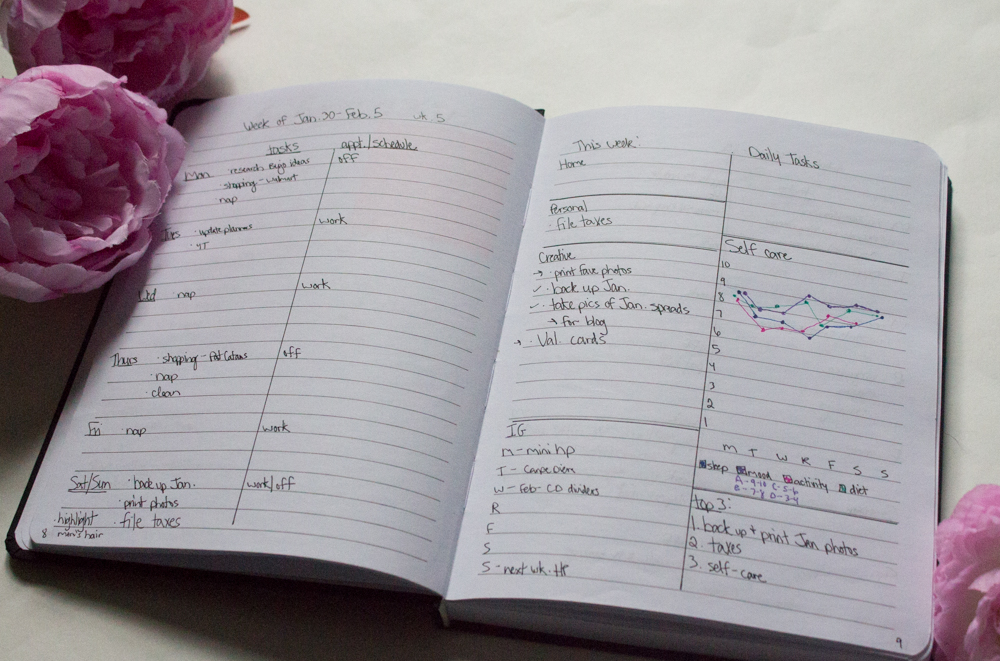 Week of Jan. 30 - Feb. 5 wk. 5
tasks appt./schedule
Mon research Bujo ideas off
· shopping - walmart
nap
Tues · update planners work
· YT
Wed nap work
Thurs · shopping - off
· nap
· clean
Fri nap work
Sat/Sun · back up Jan. work/off
· print photos
· highlight · file taxes
8 hair
This week:
Home
Personal
· file taxes
Creative
→ · print fave photos
✓ · back up Jan.
✓ · take pics of Jan. spreads
→ for blog
→ · Val. cards
IG
M - mini hp
T - Carpe Diem
W - Feb - CD dividers
R
F
S
S - next wk. HP
Daily Tasks
Self care
10
9
8
7
6
5
4
3
2
1
M T W R F S S
sleep mood activity diet
A - 9-10 C - 5-6
B - 7-8 D - 3-4
top 3:
1. back up + print Jan photos
2. taxes
3. self-care
9